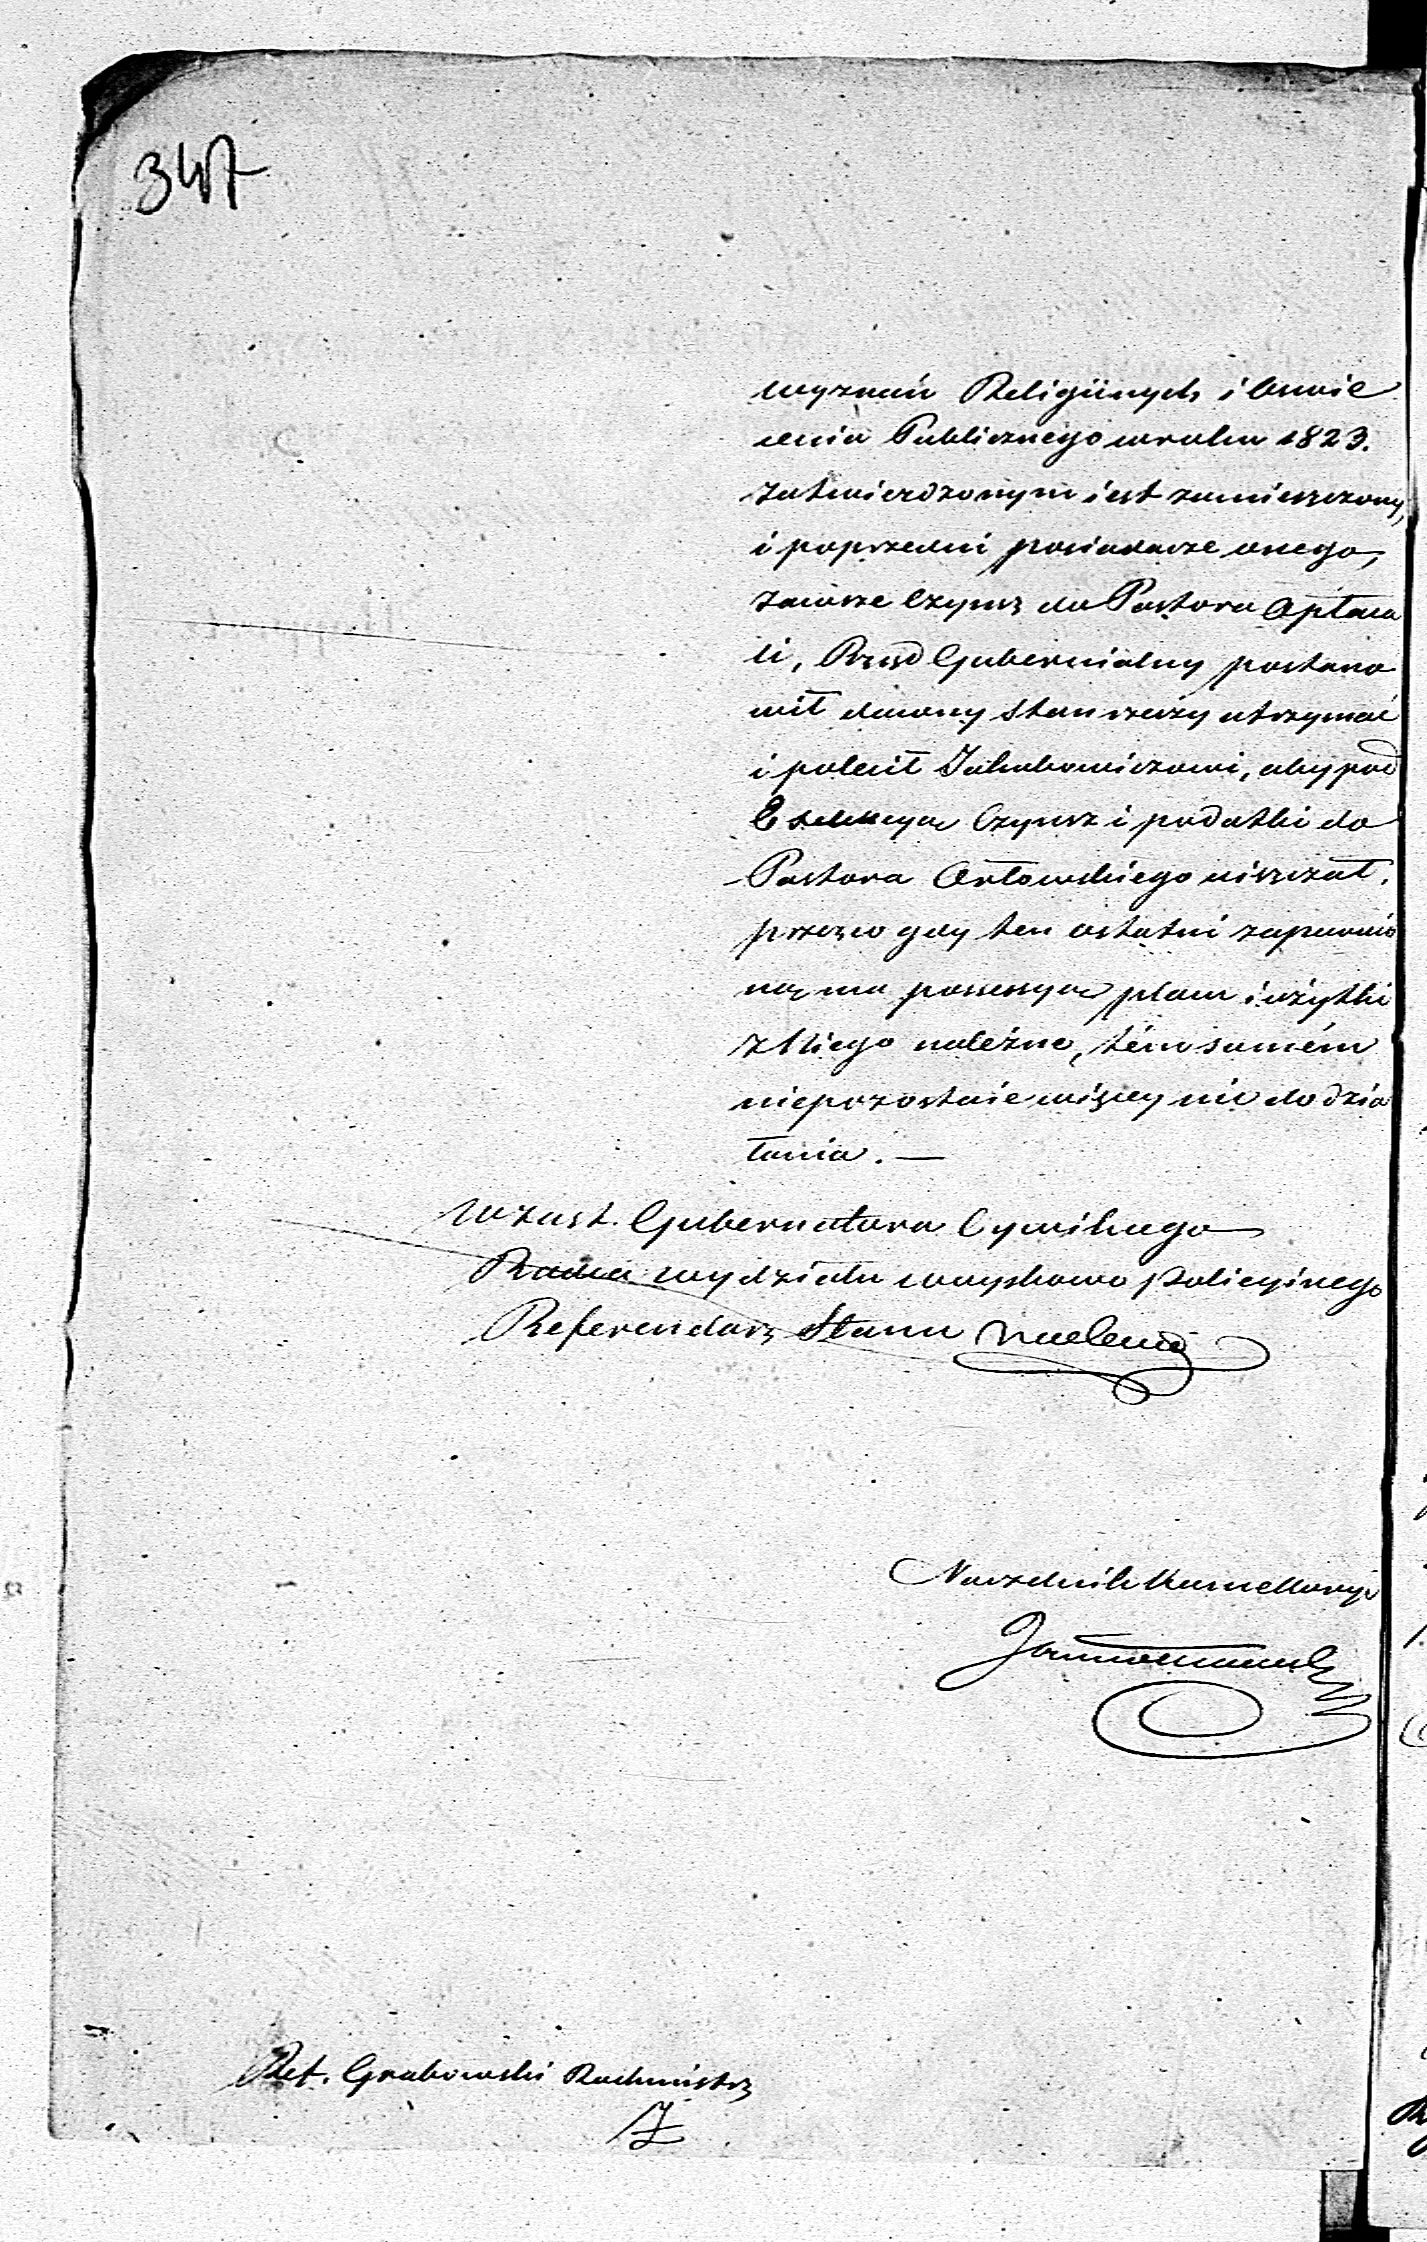 347
wyznań Religiinych i Oswie
cenia Publicznego w roku 1823.
zatwierdzonym iest zamieszczony,
i poprzedni posiadacze onego,
zawsze Czynsz do Pastora Opłaca
li, Rząd Gubernialny postano
wił dawny stan rzeczy utrzymać
i polecił Jakubowiczowi, aby pod
Exekucyą Czynsz i podatki do
Pastora Orłowskiego uiszczał,
przeto gdy ten ostatni zapewnio
ną ma possessyą placu i użytki
z Niego należne, tém samém
niepozostaie więcey nic do dzia
łania. —
w zast. Gubernatora Cywilnego
Radca wydziału woyskowo Policyinego
Referendarz Stanu
Naczelnik Kancellaryi
Ref. Grabowski Rachmistrz